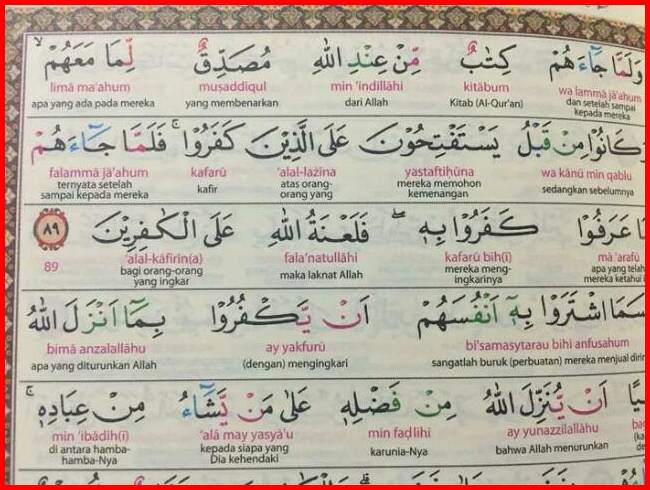 وَلَمَّا جَاۤءَهُمْ كِتٰبٌ مِّنْ عِنْدِ اللّٰهِ مُصَدِّقٌ لِّمَا مَعَهُمْۙ
wa lammā jā'ahum kitābum min 'indillāhi muṣaddiqul limā ma'ahum
dan setelah sampai kepada mereka Kitab (Al-Qur'an) dari Allah yang membenarkan apa yang ada pada mereka
وَكَانُوْا مِنْ قَبْلُ يَسْتَفْتِحُوْنَ عَلَى الَّذِيْنَ كَفَرُوْاۚ فَلَمَّا جَاۤءَهُمْ
wa kānū min qablu yastaftiḥūna 'alal-lażīna kafarū falammā jā'ahum
sedangkan sebelumnya mereka memohon kemenangan atas orang-orang yang kafir ternyata setelah sampai kepada mereka
مَّا عَرَفُوْا كَفَرُوْا بِهٖۖ فَلَعْنَةُ اللّٰهِ عَلَى الْكٰفِرِيْنَ ٨٩
mā 'arafū kafarū bih(ī) fala'natullāhi 'alal-kāfirīn(a) 89
apa yang telah mereka ketahui mereka mengingkarinya maka laknat Allah bagi orang-orang yang ingkar
سَمَا اشْتَرَوْا بِهٖٓ اَنْفُسَهُمْ اَنْ يَّكْفُرُوْا بِمَآ اَنْزَلَ اللّٰهُ
bi'samasytarau bihī anfusahum ay yakfurū bimā anzalallāhu
sangatlah buruk (perbuatan) mereka menjual (dengan) mengingkari apa yang diturunkan Allah
اَنْ يُّنَزِّلَ اللّٰهُ مِنْ فَضْلِهٖ عَلٰى مَنْ يَّشَاۤءُ مِنْ عِبَادِهٖۚ
ay yunazzilallāhu min faḍlihī 'alā may yasyā'u min 'ibādih(ī)
bahwa Allah menurunkan karunia-Nya kepada siapa yang Dia kehendaki di antara hamba-hamba-Nya